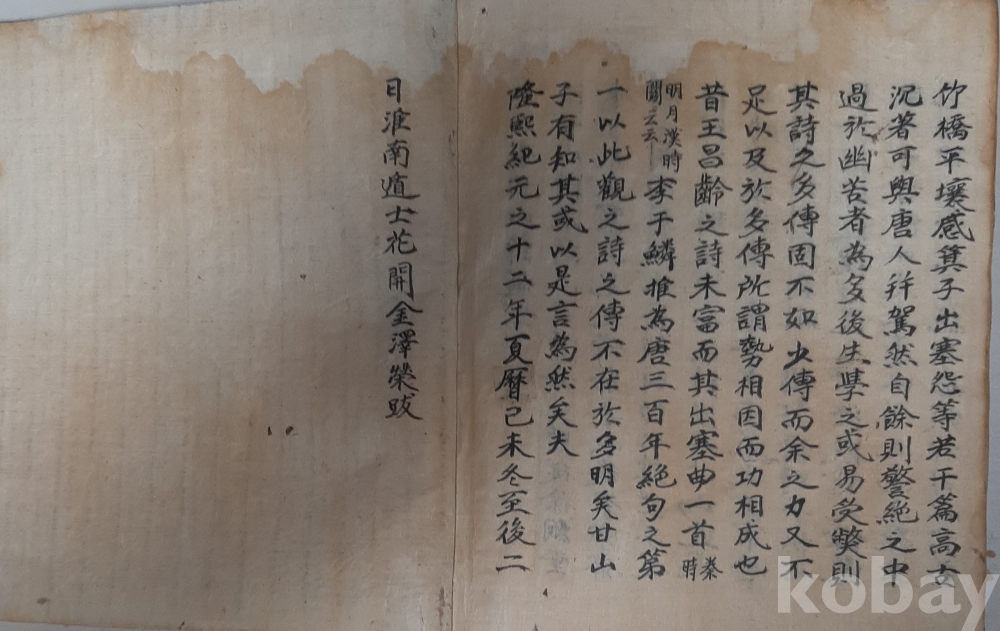 竹橋平壤感箕子出塞怨等若干篇高古
沉著可與唐人幷駕然自餘則警絶之中
過於幽苦者為多後生學之或易受獘則
其詩之多傳固不如少傳而余之力又不
足以及於多傳所謂勢相因而功相成也
昔王昌齡之詩未富而其出塞曲一首秦時
明月漢時關云云李于鱗推為唐三百年絶句之第
一以此觀之詩之傳不在於多明矣甘山
子有知其或以是言為然矣夫
隆熙紀元之十二年夏曆己未冬至後二
日淮南遁士花開金澤榮跋
kobay